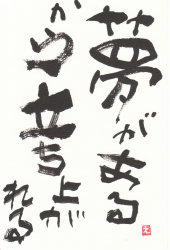 夢がある
から立ち上が
れる